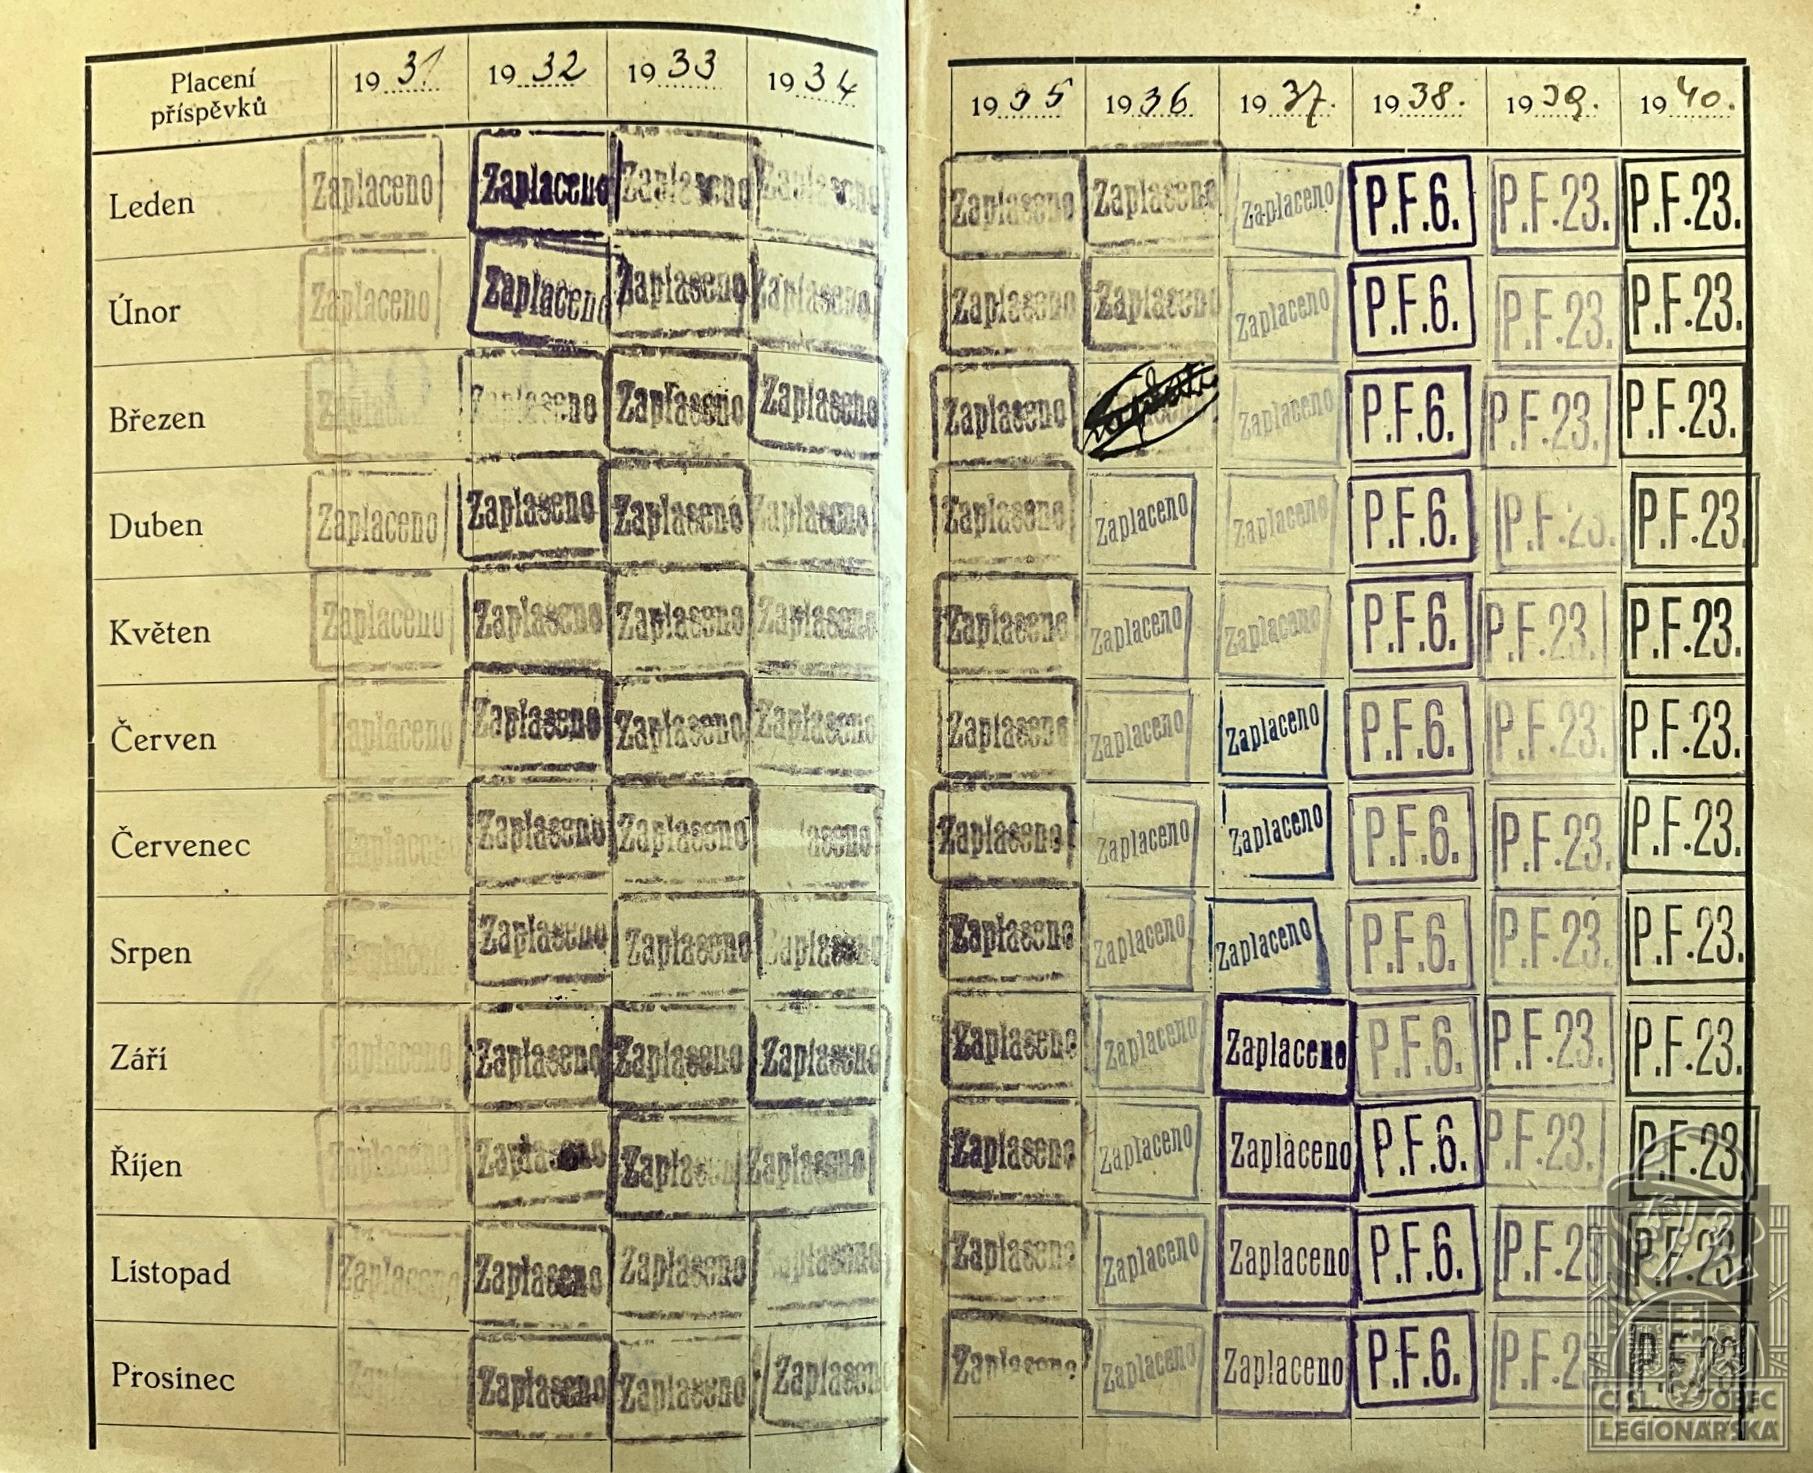 Placení příspěvků 1931 1932 1933 1934 1935 1936 1937. 1938. 1939. 1940.
Leden Zaplaceno Zaplaceno Zaplaceno Zaplaceno Zaplaceno Zaplaceno Zaplaceno P.F.6. P.F.23. P.F.23.
Únor Zaplaceno Zaplaceno Zaplaceno Zaplaceno Zaplaceno Zaplaceno Zaplaceno P.F.6. P.F.23. P.F.23.
Březen Zaplaceno Zaplaceno Zaplaceno Zaplaceno Zaplaceno Zaplaceno P.F.6. P.F.23. P.F.23.
Duben Zaplaceno Zaplaceno Zaplaceno Zaplaceno Zaplaceno Zaplaceno Zaplaceno P.F.6. P.F.23. P.F.23.
Květen Zaplaceno Zaplaceno Zaplaceno Zaplaceno Zaplaceno Zaplaceno Zaplaceno P.F.6. P.F.23. P.F.23.
Červen Zaplaceno Zaplaceno Zaplaceno Zaplaceno Zaplaceno Zaplaceno Zaplaceno P.F.6. P.F.23. P.F.23.
Červenec Zaplaceno Zaplaceno Zaplaceno aceno Zaplaceno Zaplaceno Zaplaceno P.F.6. P.F.23. P.F.23.
Srpen Zaplaceno Zaplaceno Zaplaceno Zaplaceno Zaplaceno Zaplaceno Zaplaceno P.F.6. P.F.23. P.F.23.
Září Zaplaceno Zaplaceno Zaplaceno Zaplaceno Zaplaceno Zaplaceno Zaplaceno P.F.6. P.F.23. P.F.23.
Říjen Zaplaceno Zaplaceno Zaplaceno Zaplaceno Zaplaceno Zaplaceno Zaplaceno P.F.6. P.F.23. P.F.23
Listopad Zaplaceno Zaplaceno Zaplaceno Zaplaceno Zaplaceno Zaplaceno Zaplaceno P.F.6. P.F.23 P.F.23
Prosinec Zaplaceno Zaplaceno Zaplaceno Zaplaceno Zaplaceno Zaplaceno P.F.6. P.F.23 P.F.23
ČSL. OBEC
LEGIONÁŘSKÁ